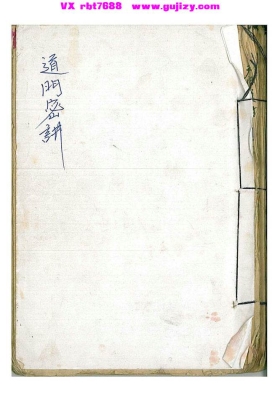 VX rbt7688 www.gujizy.com
道門密訣